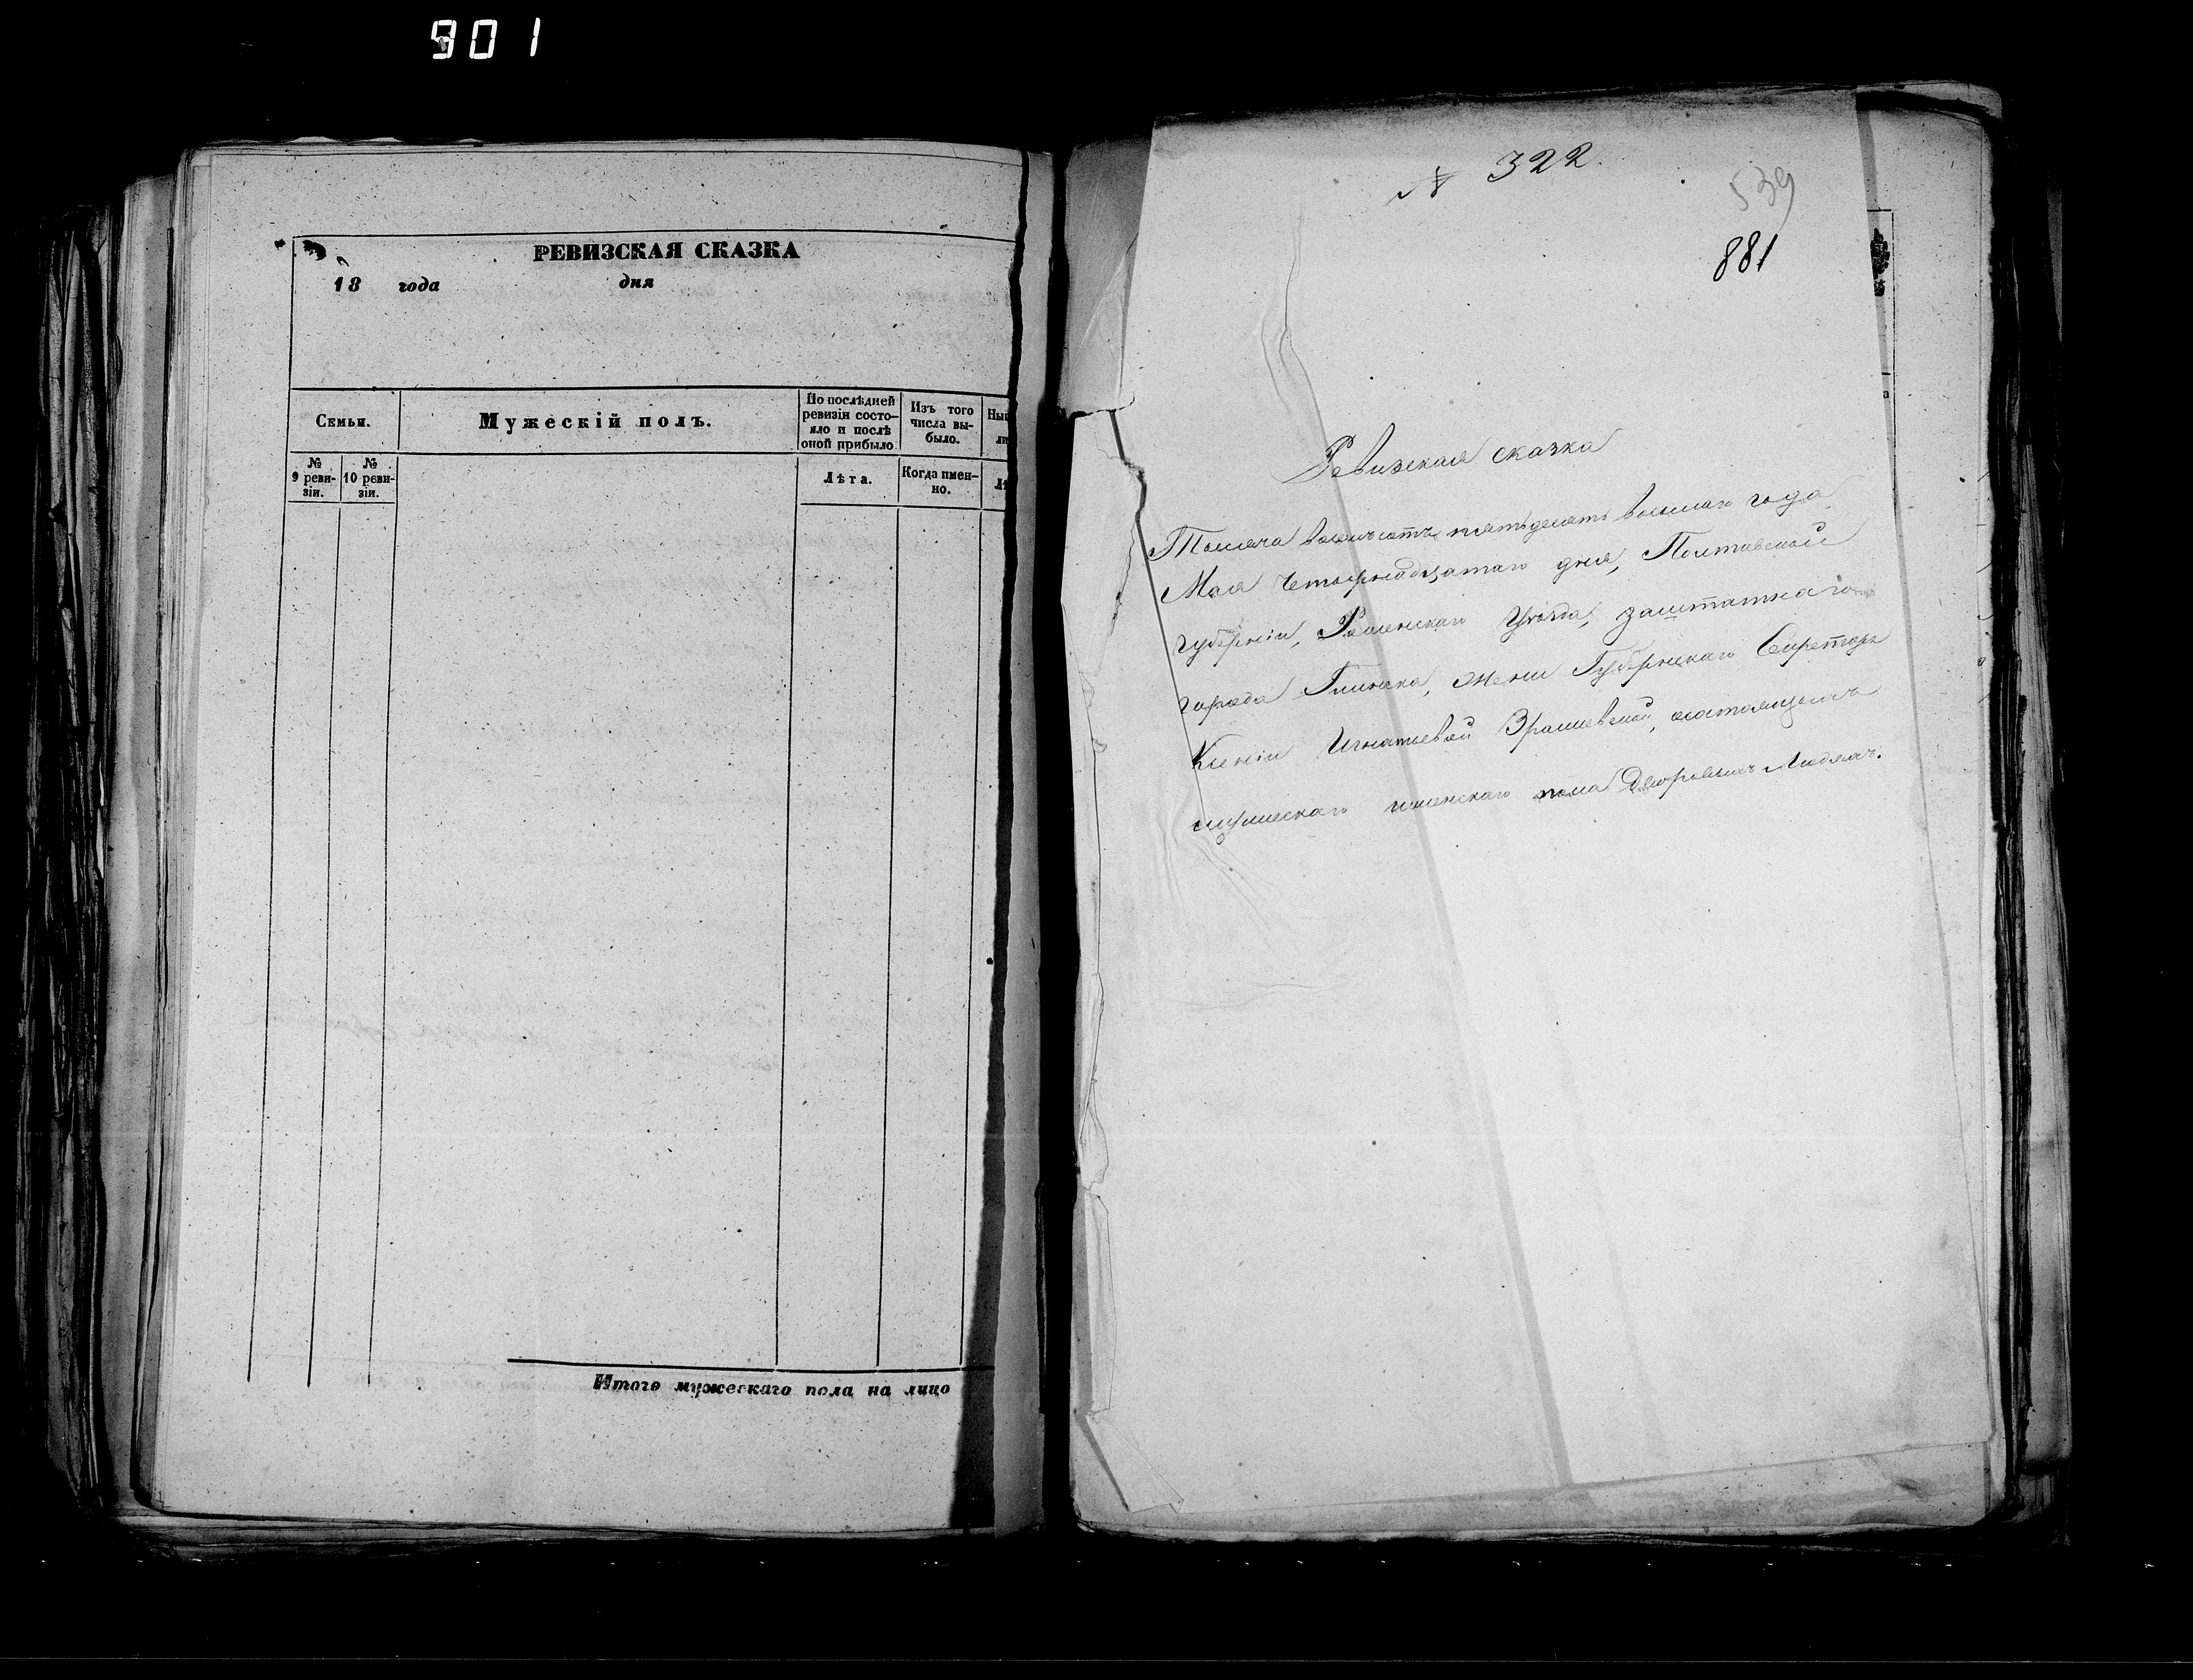 901
РЕВИЗСКАЯ СКАЗКА
18 года дня
Семьи.
Мужескій полъ.
По послѣдней ревизіи состо-
яло и послѣ
оной прибыло
Изъ того
числа вы-
было.
№
9 реви-
зіи.
№
10 реви-
зіи.
Лѣта.
Когда имен-
но.
Итого мужескаго пола на лицо
№ 322.
539
881
Ревизская сказка
Тысяча восемьсотъ пятьдесятъ восьмаго года
Мая четырнадцатаго дня, Полтавской
губерніи, Роменскаго Уѣзда, заштатнаго
города Глинска, жены Губернскаго Секретаря
Ксеніи Игнатьевой состоящимъ
мужескаго и женскаго пола Дворовымъ Людямъ.